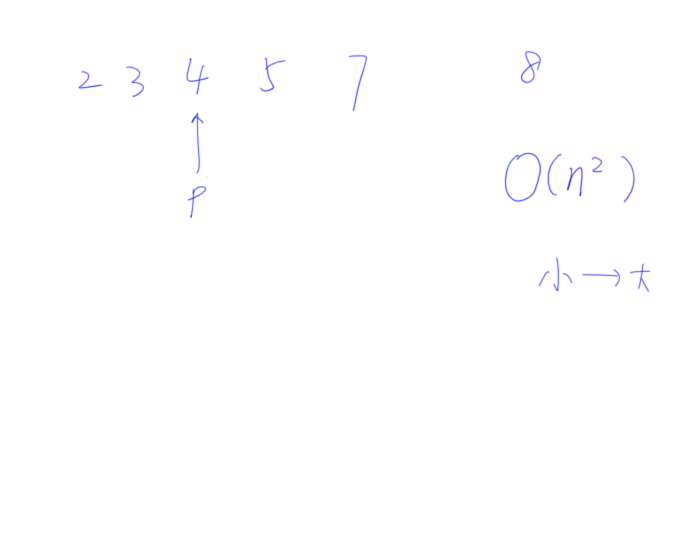 2 3 4 5 7 8
↑
P
O(n²)
小→大